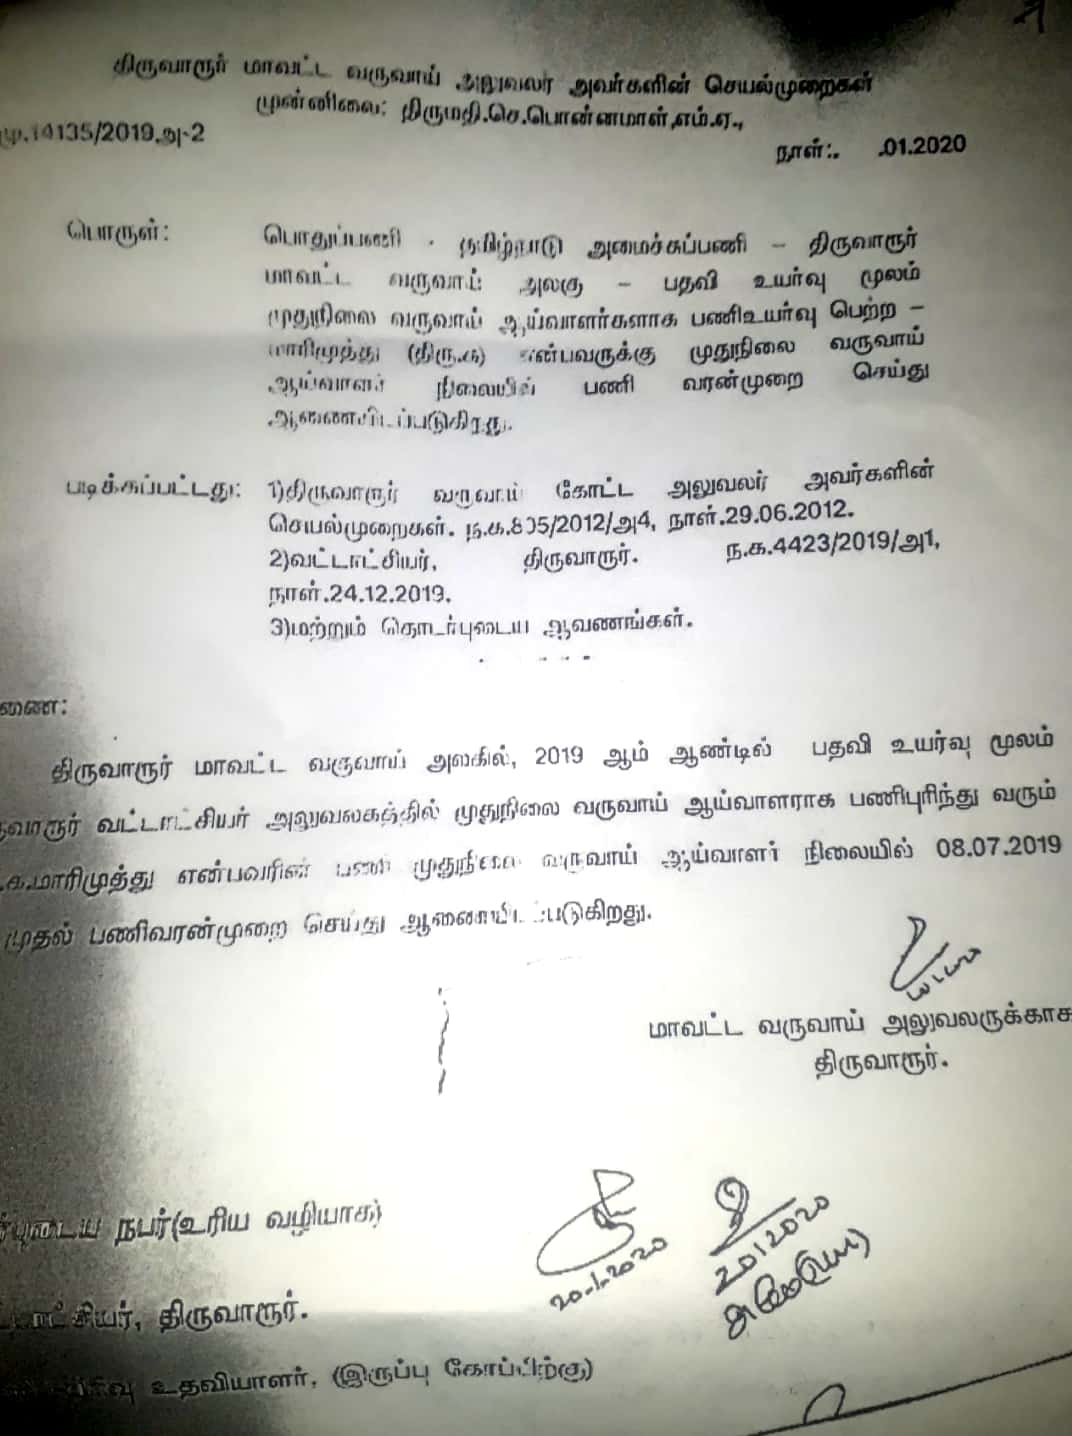 திருவாரூர் மாவட்ட வருவாய் அலுவலர் அவர்களின் செயல்முறைகள்
முன்னிலை: திருமதி.செ.பொன்னமாள்,எம்.ஏ.,
மு.14135/2019.அ-2
நாள்:. .01.2020
பொருள்: பொதுப்பணி - தமிழ்நாடு அமைச்சுப்பணி – திருவாரூர்
மாவட்ட வருவாய் அலகு – பதவி உயர்வு மூலம்
முதுநிலை வருவாய் ஆய்வாளர்களாக பணிஉயர்வு பெற்ற –
மாரிமுத்து (திரு.க) என்பவருக்கு முதுநிலை வருவாய்
ஆய்வாளர் நிலையில் பணி வரன்முறை செய்து
ஆணையிடப்படுகிறது.
படிக்கப்பட்டது: 1)திருவாரூர் வருவாய் கோட்ட அலுவலர் அவர்களின்
செயல்முறைகள். ந.க.805/2012/அ4, நாள்.29.06.2012.
2)வட்டாட்சியர், திருவாரூர். ந.க.4423/2019/அ1,
நாள்.24.12.2019.
3)மற்றும் தொடர்புடைய ஆவணங்கள்.
ணை:
திருவாரூர் மாவட்ட வருவாய் அலகில், 2019 ஆம் ஆண்டில் பதவி உயர்வு மூலம்
ருவாரூர் வட்டாட்சியர் அலுவலகத்தில் முதுநிலை வருவாய் ஆய்வாளராக பணிபுரிந்து வரும்
.க.மாரிமுத்து என்பவரின் பணி முதுநிலை வருவாய் ஆய்வாளர் நிலையில் 08.07.2019
முதல் பணிவரன்முறை செய்து ஆணையிடப்படுகிறது.
மாவட்ட வருவாய் அலுவலருக்காக
திருவாரூர்.
ர்புடைய நபர்(உரிய வழியாக)
20.1.2020
20/1/2020
ட்டாட்சியர், திருவாரூர்.
பிரிவு உதவியாளர், (இருப்பு கோப்பிற்கு)